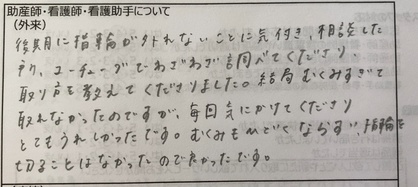 助産師・看護師・看護助手について
(外来)
後期に指輪が外れないことに気付き、相談した
所、ユーチューブでわざわざ調べてくださり、
取り方を教えてくださりました。結局むくみすぎて
取れなかったのですが、毎回気にかけてくださり
とてもうれしかったです。むくみもひどくならずに、指輪を
切ることはなかったので良かったです。